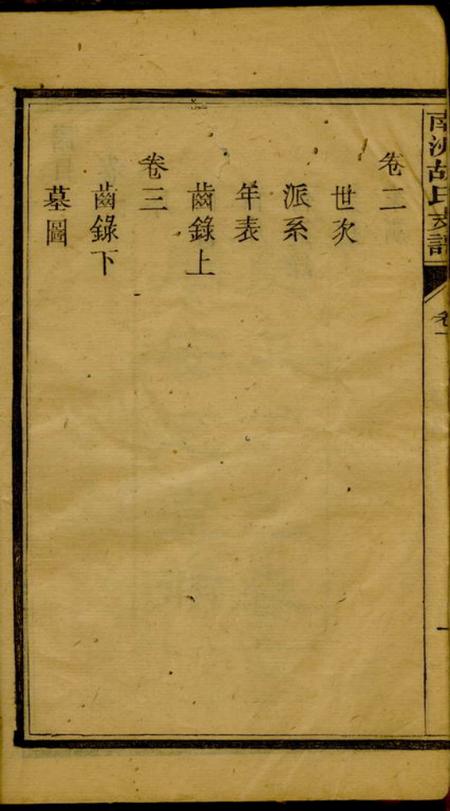 南洲胡氏支譜
卷一
一
卷二
世次
派系
年表
齒錄上
卷三
齒錄下
墓圖